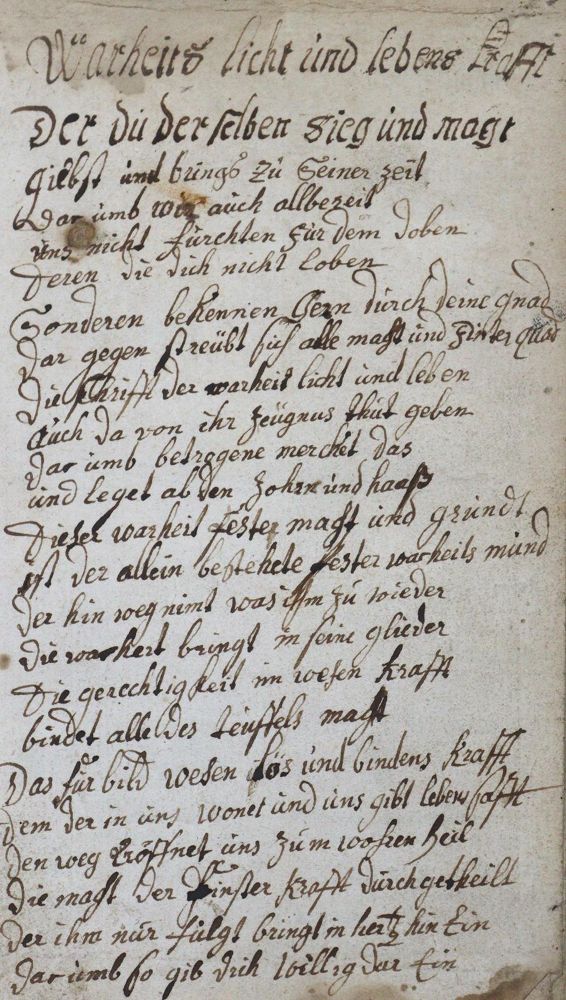 Warheits licht und lebens Krafft
Der du derselben sieg und magt
giebst und brings zu Seiner zeit
Dar umb wir auch allbezeit
uns nicht fürchten für dem doben
deren die dich nicht loben
Sonderen bekennen Gern durch deine gnad
dar gegen streübt sich alle macht und
die schrifft der warheit licht und leben
Auch da von ihr zeügnus thut geben
dar umb betrogene mercket das
und leget ab den zohrn und haaß
Dieser warheit fester macht und grundt
ist der allein bestehete fester warheits mund
der hin weg nimt was ihm zu wieder
die warheit bringt in seine glieder
Die gerechtigkeit im wesen Krafft
bindet alle des teuffels macht
Das für bild wesen lös und bindens Krafft
dem der in uns wonet und uns gibt lebens safft
den weg Eröffnet uns zum wahren heil
die macht der Finster Krafft durchgetheilt
der ihm nur fulgt bringt in hertz hin Ein
dar umb so gib dich willig dar Ein